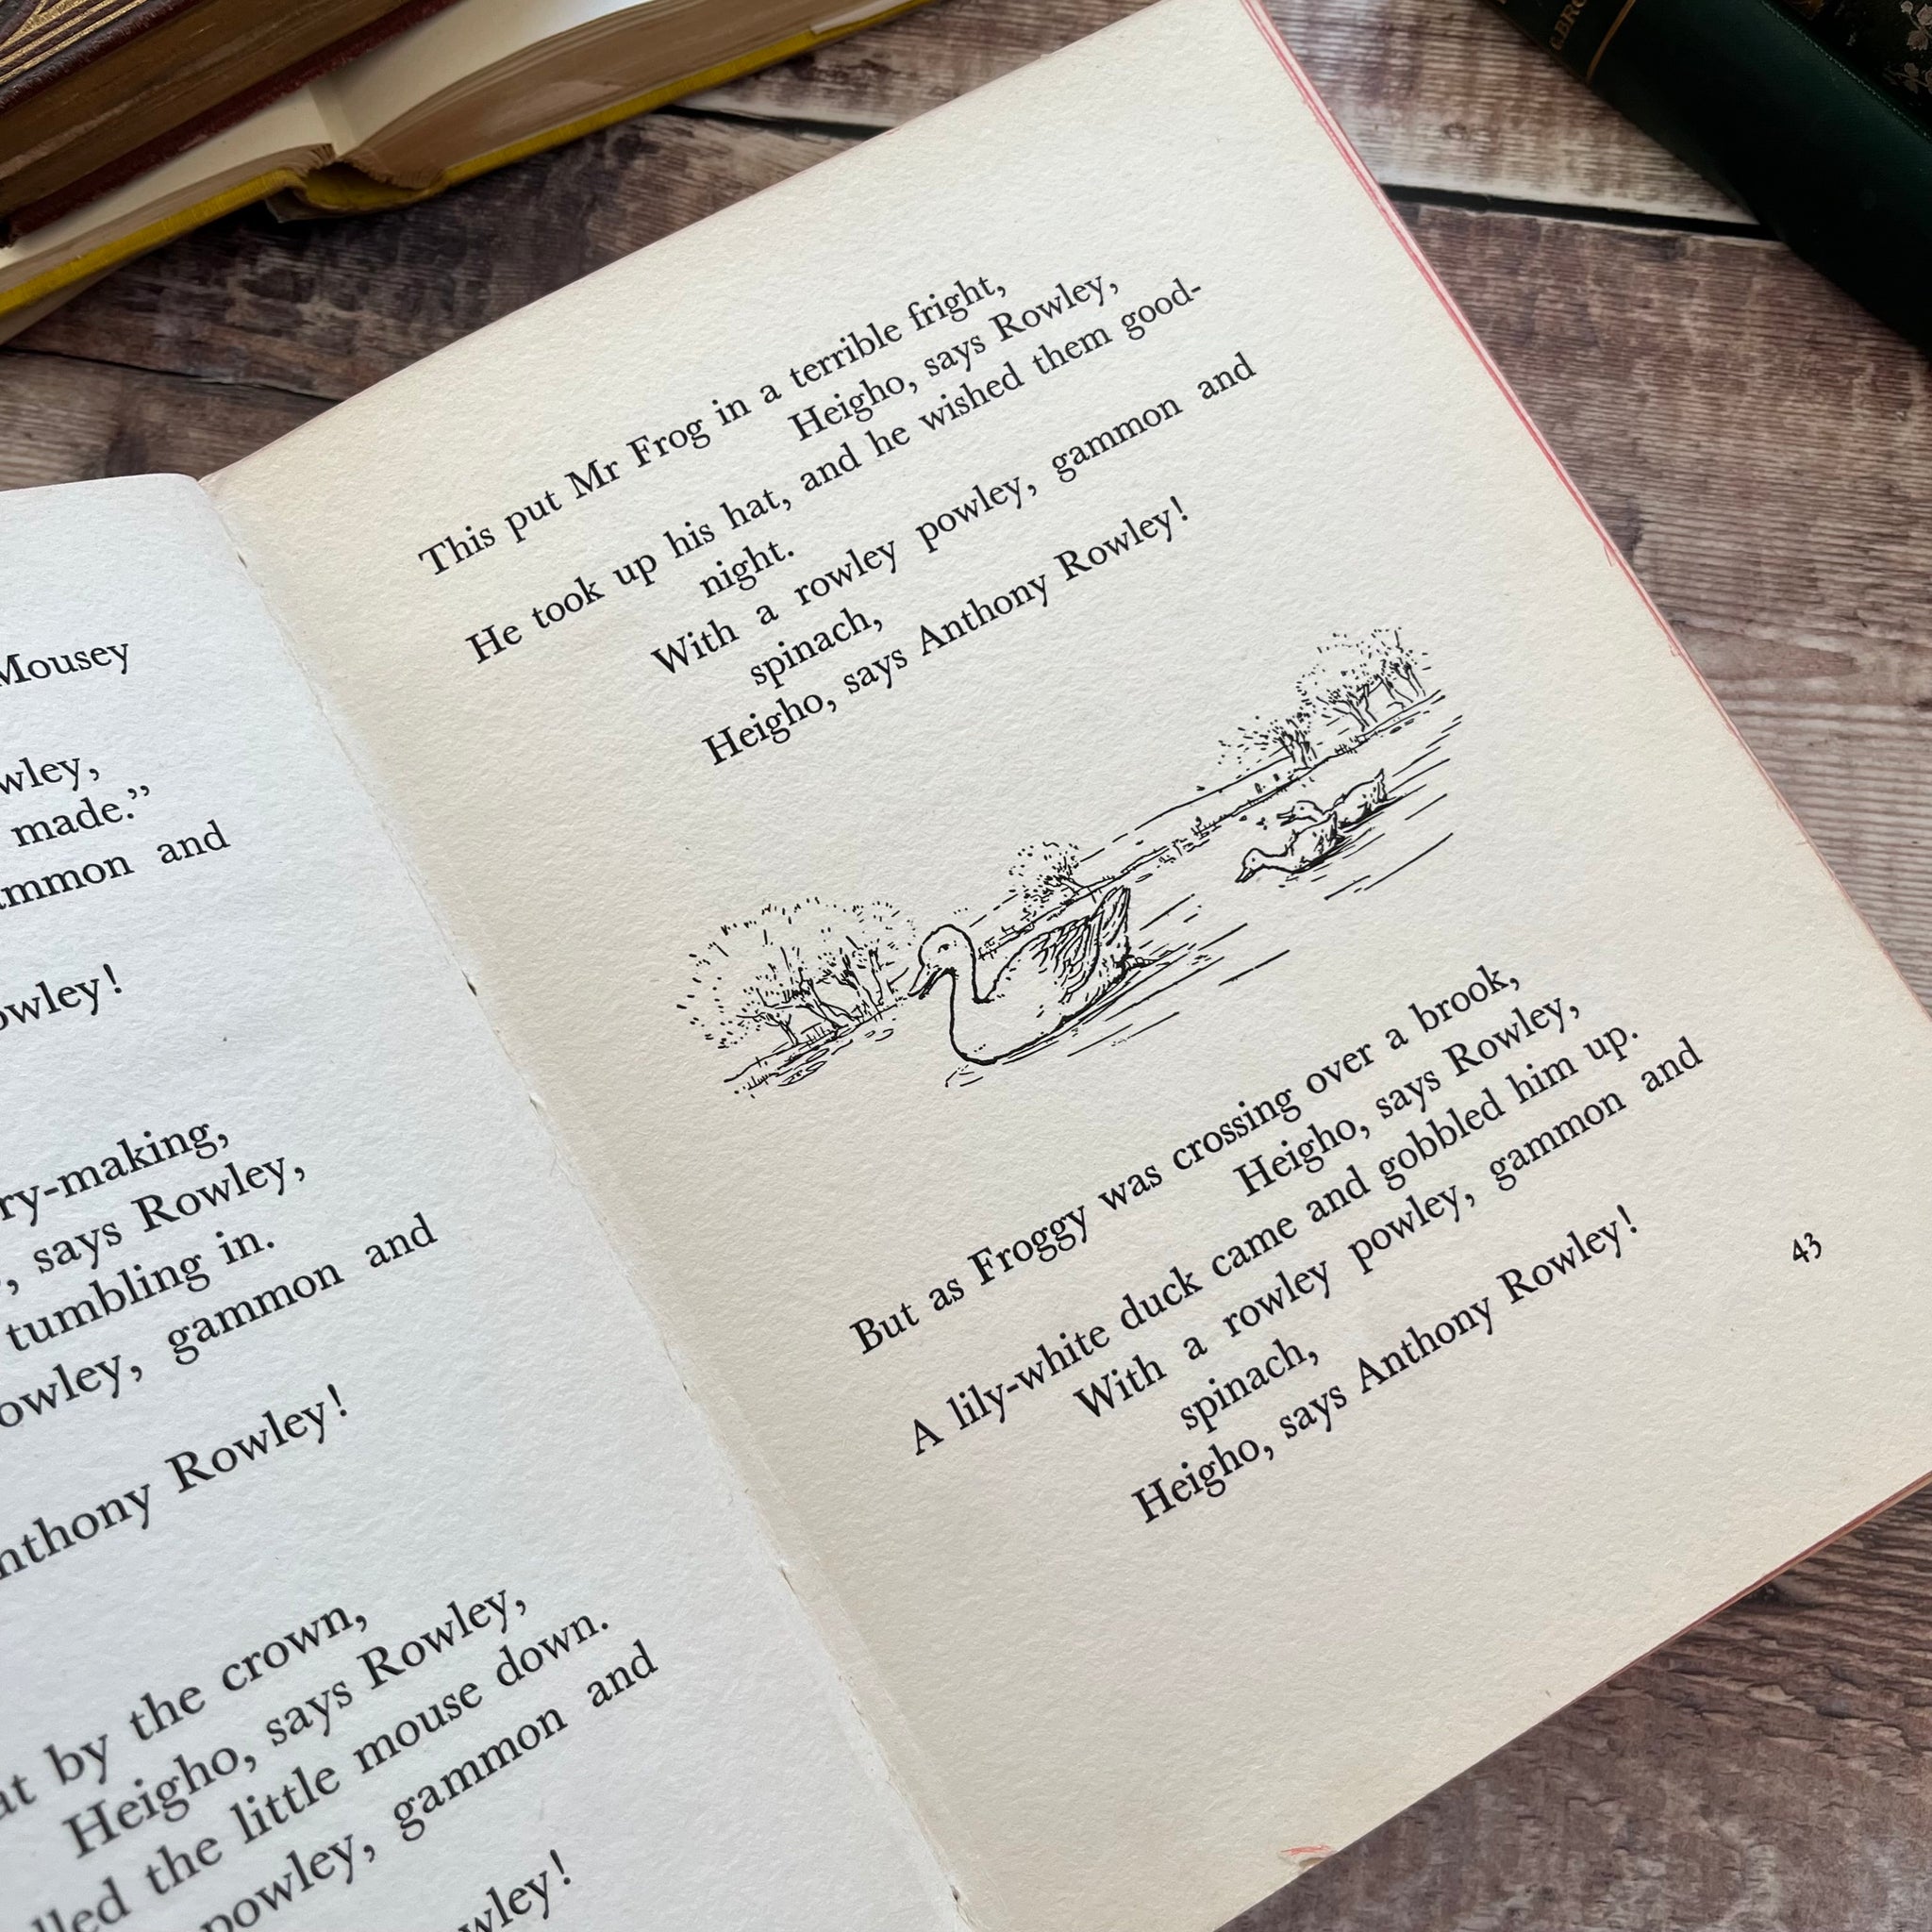 Mousey
made.”
and
ry-making,
says Rowley,
tumbling in.
gammon and
Rowley!
by the crown,
Heigho, says Rowley,
the little mouse down.
powley, gammon and
This put Mr Frog in a terrible fright,
Heigho, says Rowley,
He took up his hat, and he wished them good-
night.
With a rowley powley, gammon and
spinach,
Heigho, says Anthony Rowley!
But as Froggy was crossing over a brook,
Heigho, says Rowley,
A lily-white duck came and gobbled him up.
With a rowley powley, gammon and
spinach,
Heigho, says Anthony Rowley!
43